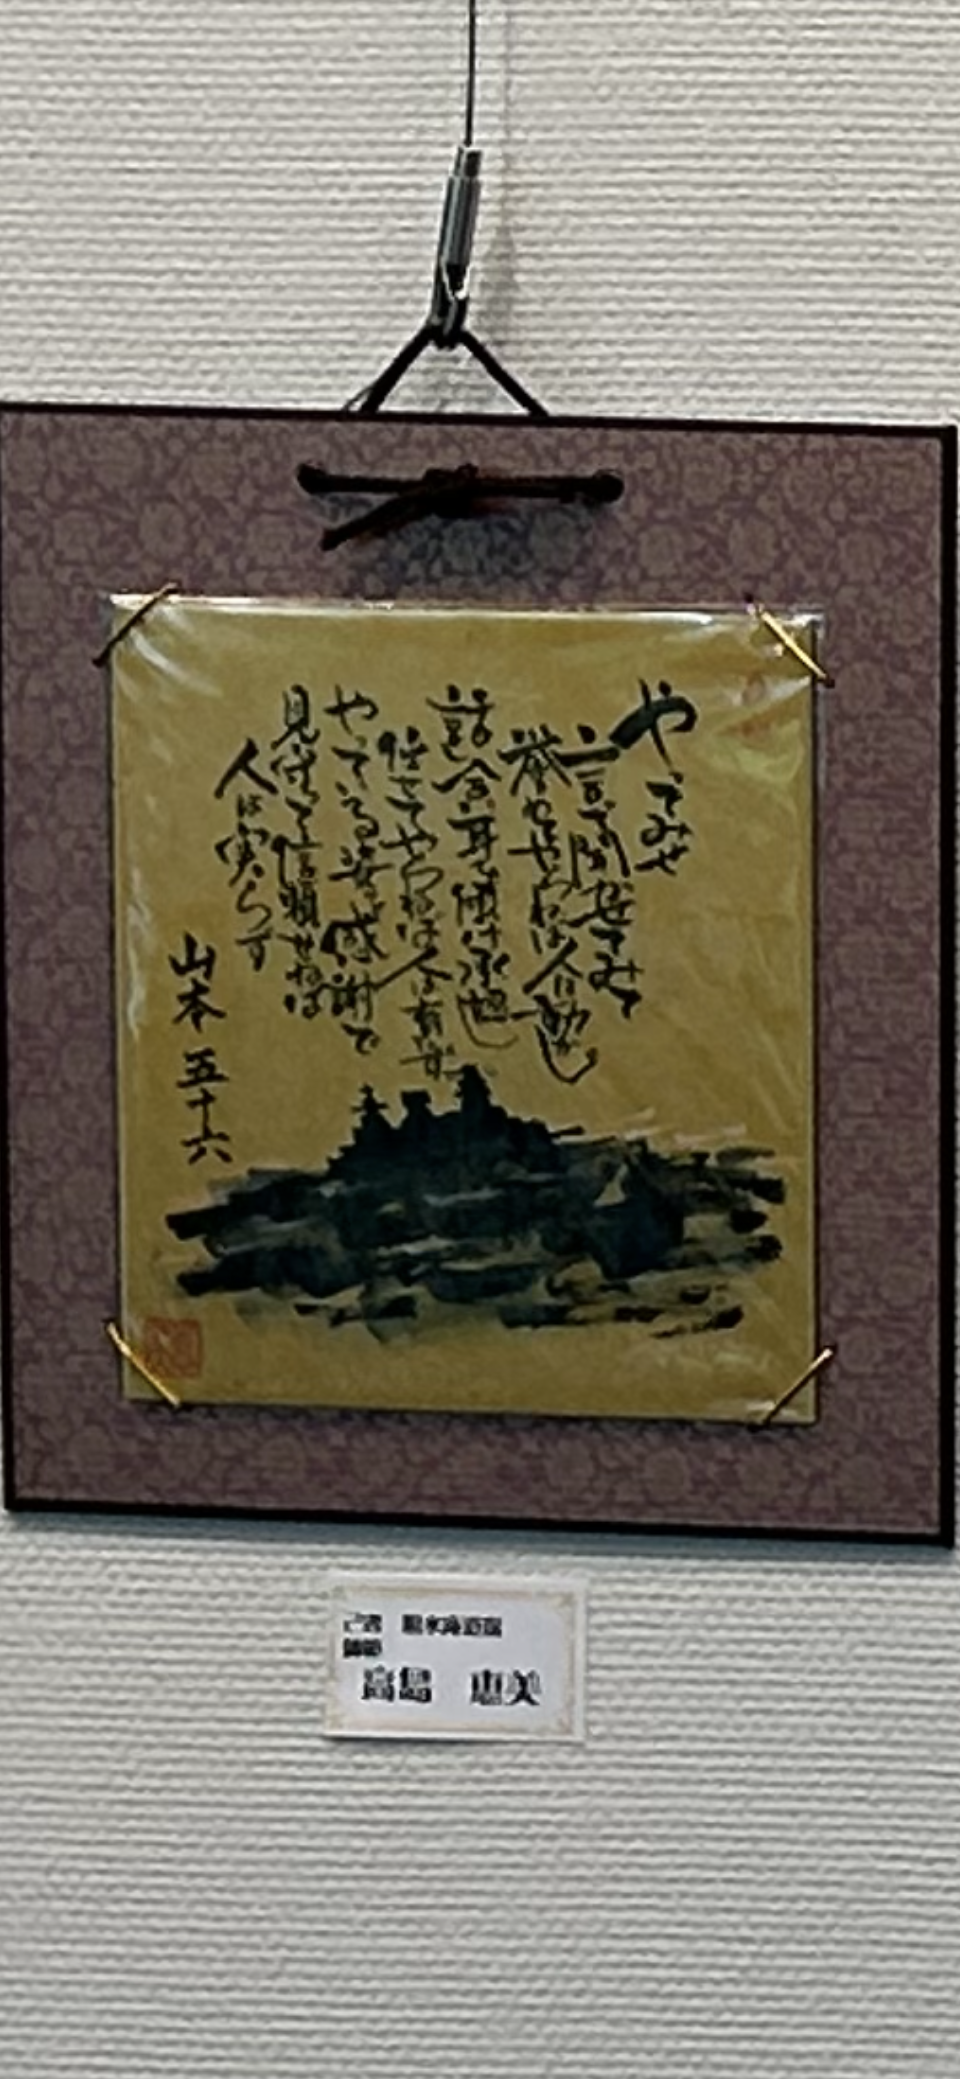 やってみせ
言って聞かせてみて
誉めてやらねば人は動かじ
話し合い耳を傾け承認し
任せてやらねば人は育たず
やっている姿を感謝で
見守って信頼せねば
人は実らず
山本 五十六
高島 恵美